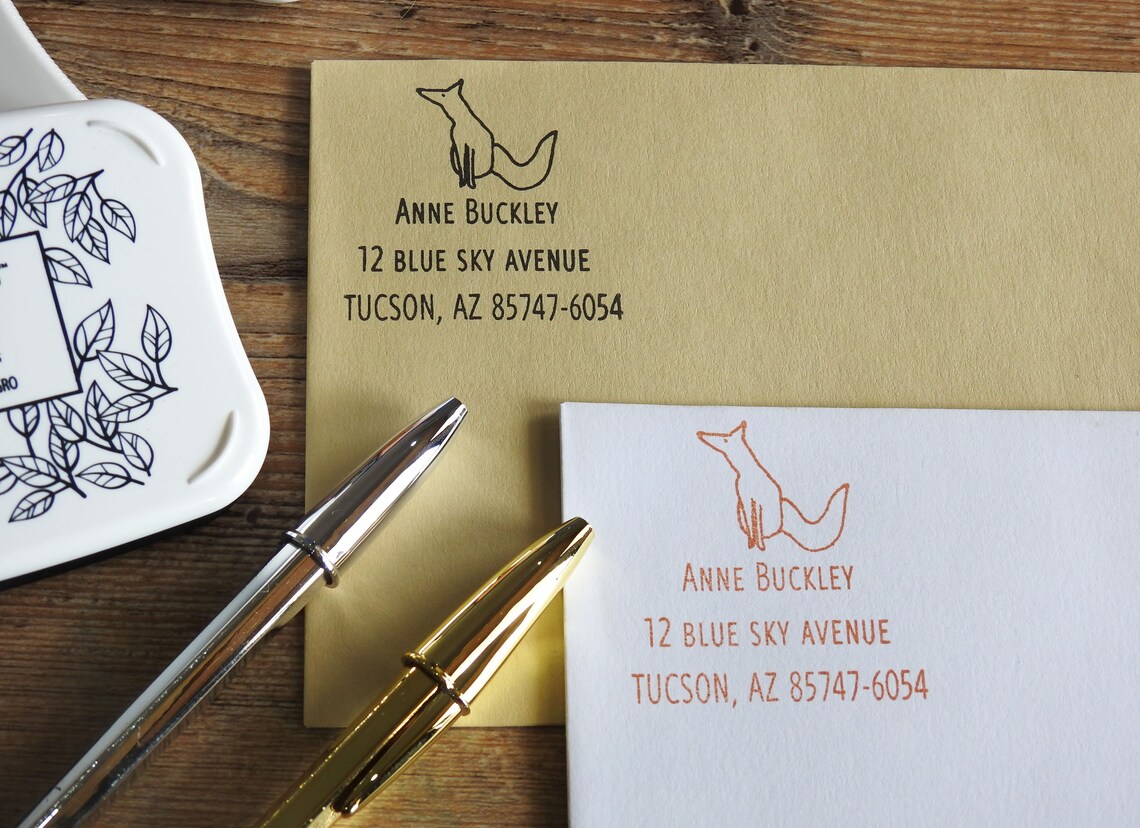 Anne Buckley
12 BLUE SKY AVENUE
TUCSON, AZ 85747-6054
Anne Buckley
12 BLUE SKY AVENUE
TUCSON, AZ 85747-6054